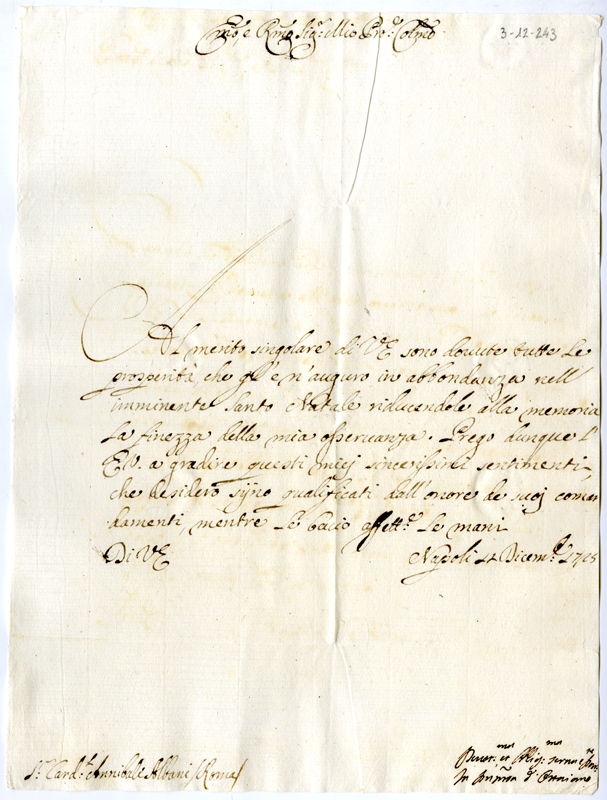 Em̃o, e Rm̃o Sig.r Mio Pro.n Colm̃o
3-12-243
Al merito singolare di VE sono dovute tutte le
prosperità che gl'e n'auguro in abbondanza nell'
imminente Santo Natale riducendole alla memoria
la finezza della mia osservanza. Prego dunque l'
EV. a gradire questi miej sincerissimi sentimenti,
che desidero sijno qualificati dall'onore de suoj coman
damenti, mentre le bacio affett.e le mani
Di VE
Napoli 14 Dicem.e
S.r Card.l Annibale Albani (Roma)
Devot.mo et Oblig.mo
d'Ottaiano